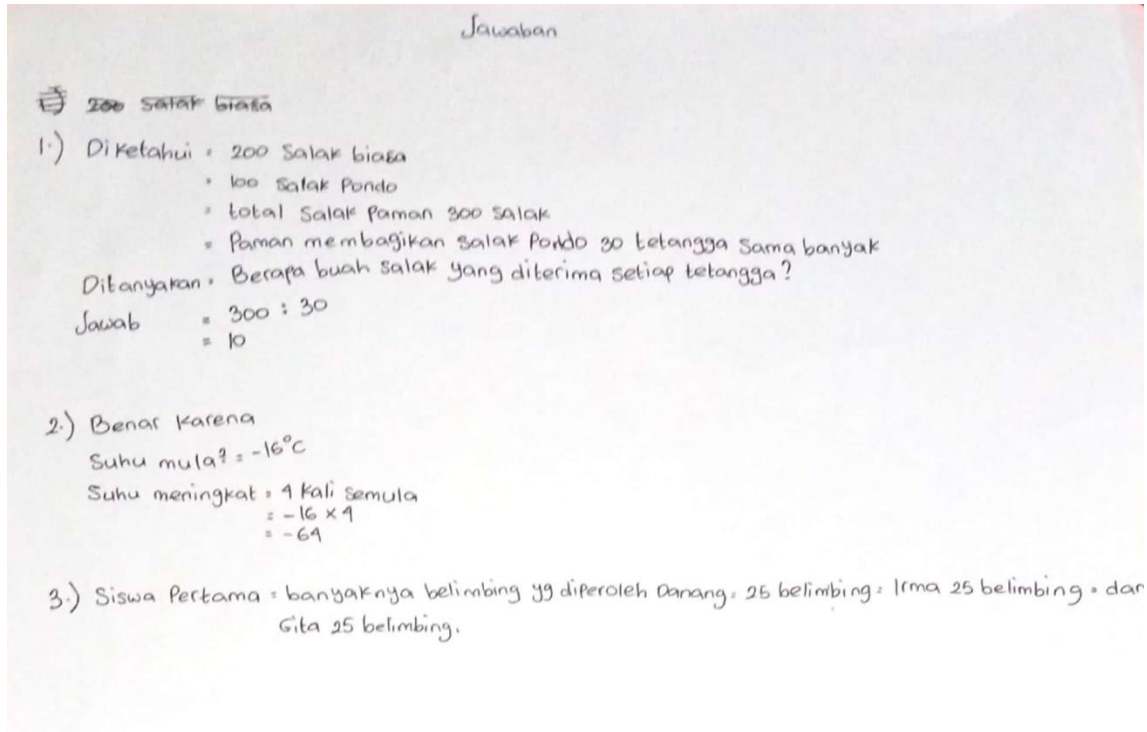 Jawaban
200 salak biasa
1.) Diketahui = 200 Salak biasa
= 100 Salak Pondo
= total Salak Paman 300 salak
= Paman membagikan salak Pondo 30 tetangga sama banyak
Ditanyakan = Berapa buah salak yang diterima setiap tetangga?
Jawab = 300 : 30
= 10
2.) Benar Karena
Suhu mula² = -16°C
Suhu meningkat = 4 kali semula
= -16 x 4
= -64
3.) Siswa Pertama = banyaknya belimbing yg diperoleh Danang = 25 belimbing = Irma 25 belimbing = dan
Gita 25 belimbing.